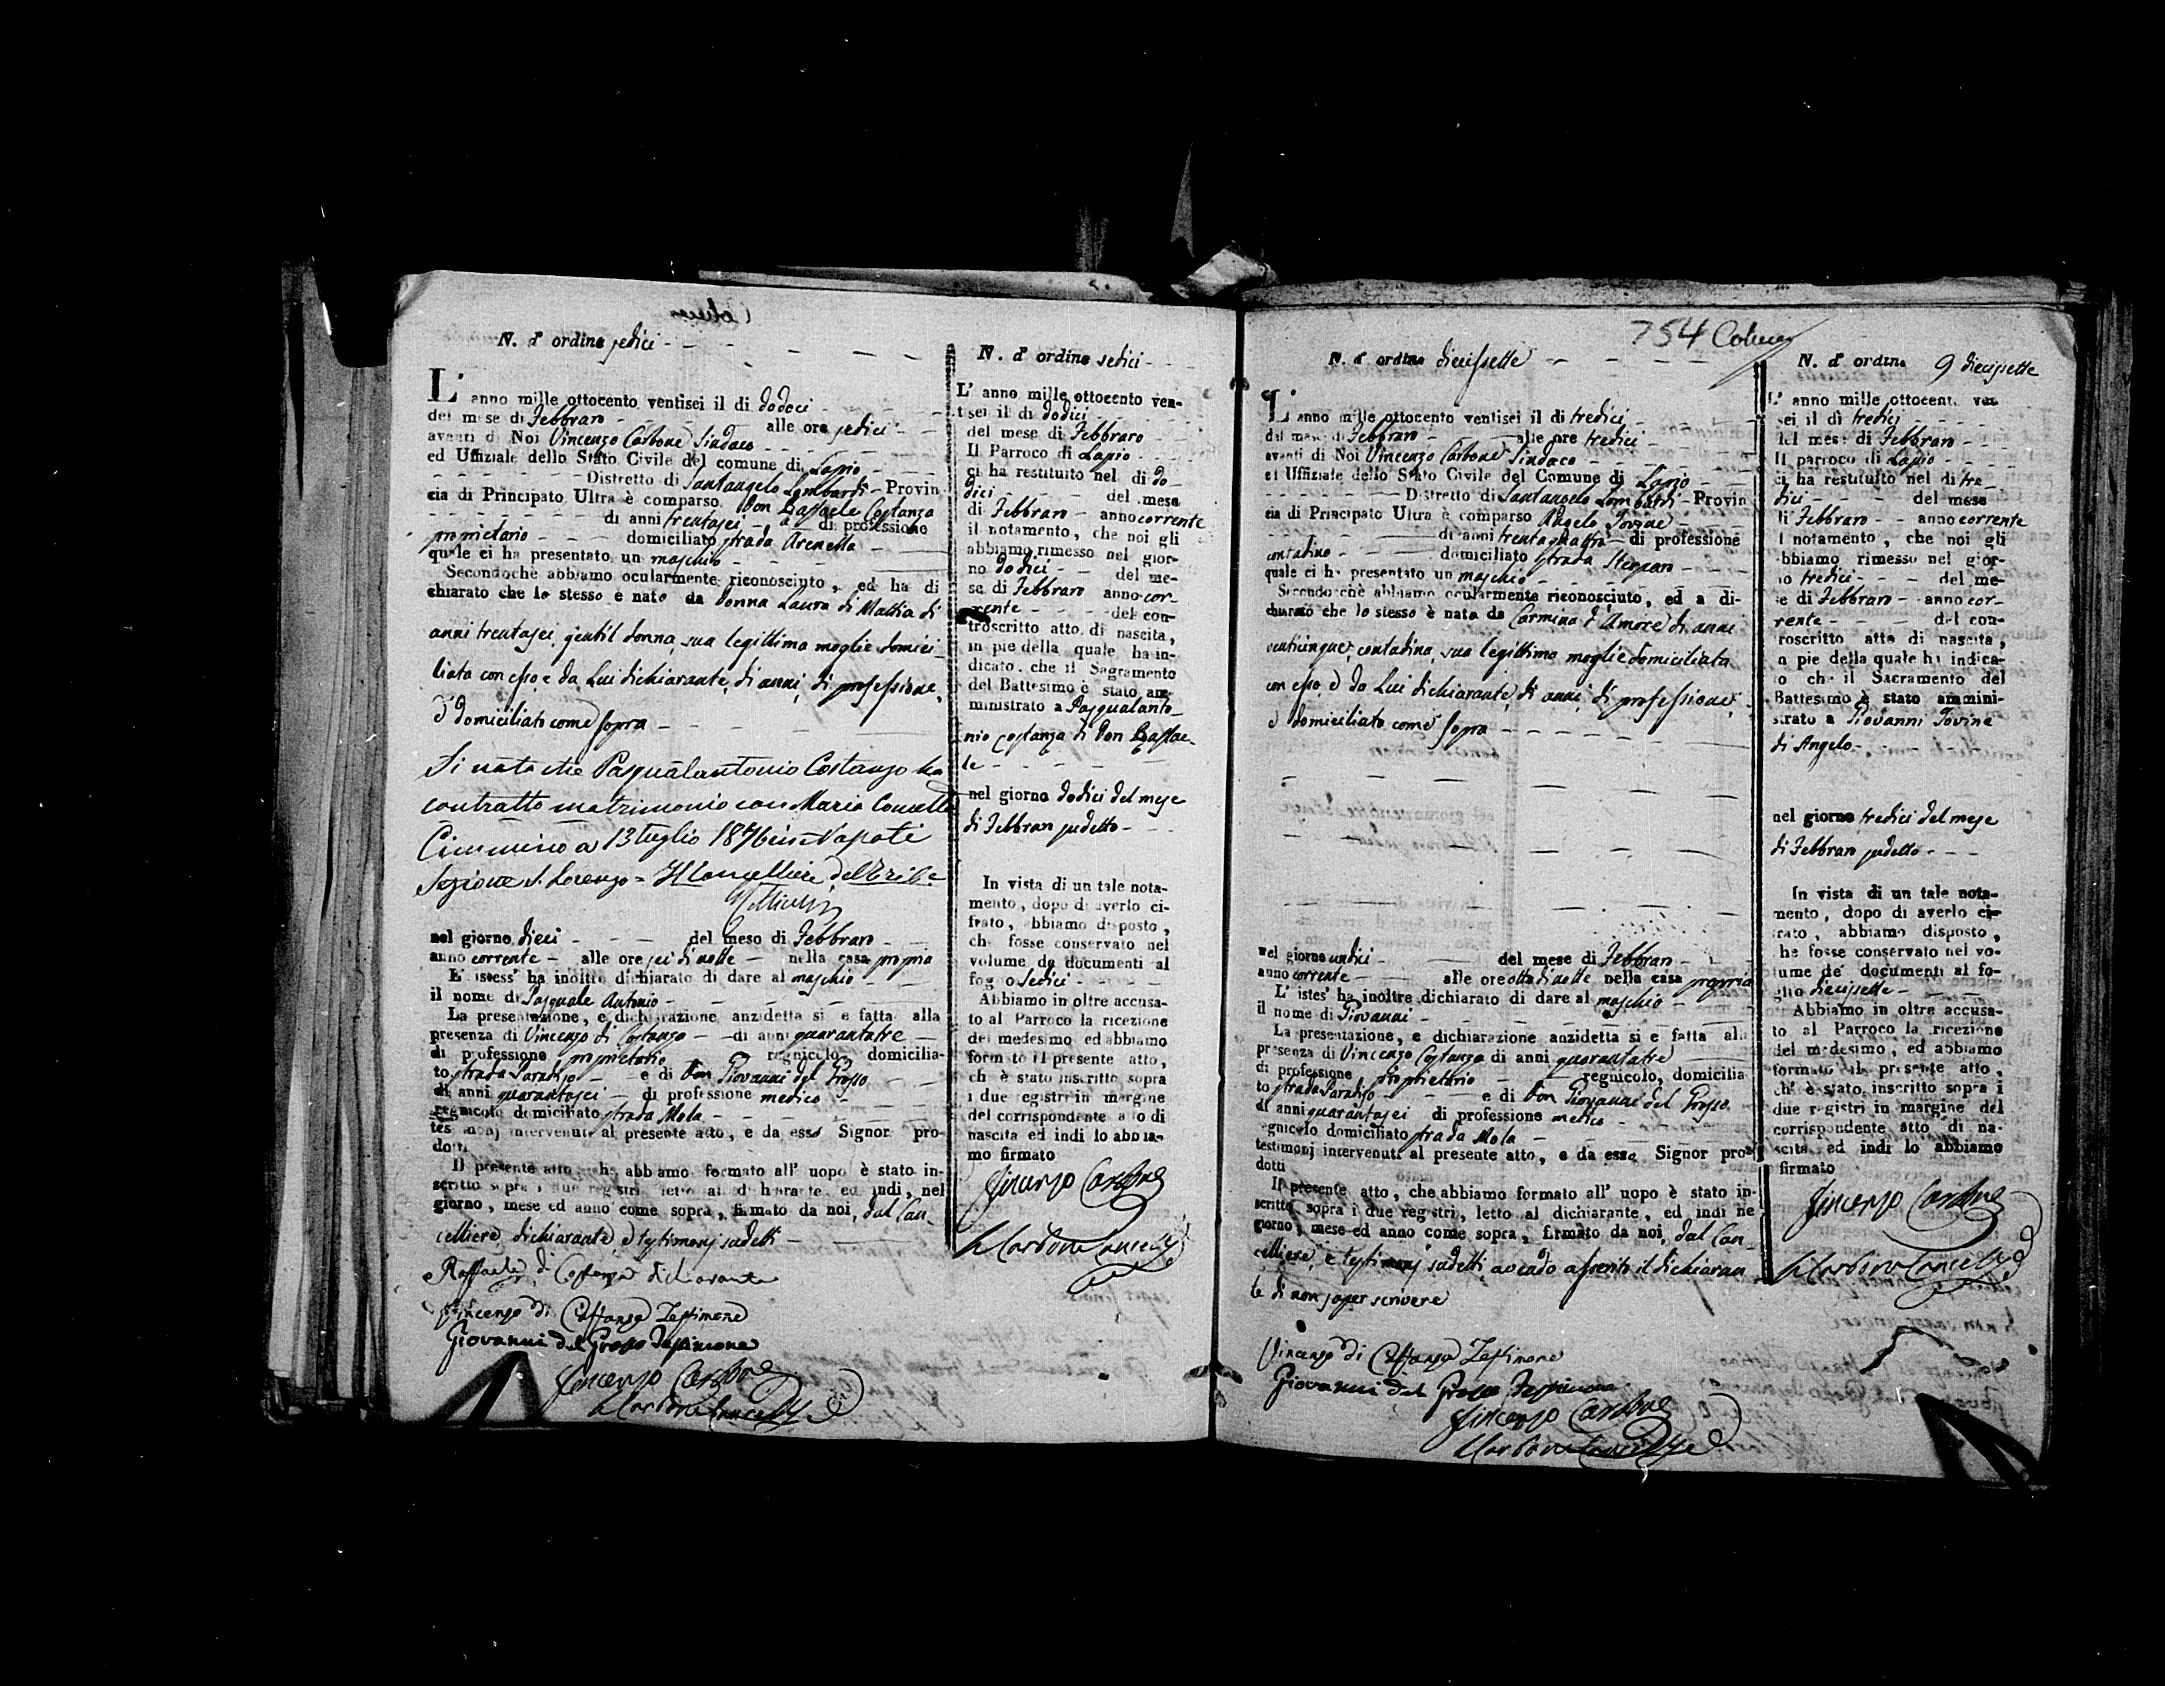 N. d' ordine sedici
L' anno mille ottocento ventisei il di dodeci
del mese di Febbraro alle ore sedici
avanti di Noi Vincenzo Carbone Sindaco
ed Uffiziale dello Stato Civile del comune di Lapio
Distretto di Santangelo Lombardi Provin
cia di Principato Ultra è comparso Don Raffaele Costanza
di anni trentasei di professione
proprietario domiciliato strada Arenella
quale ci ha presentato un maschio
Secondoche abbiamo ocularmente riconosciuto, ed ha di
chiarato che lo stesso è nato da Donna Laura di Mattia di
anni trentasei, gentil donna, sua legittima moglie domici
liata con esso, e da Lui dichiarante, di anni, di professione,
e domiciliato come sopra
Si nota che Pasqualantonio Costanzo ha
contratto matrimonio con Maria Concetta
Cimmino a 13 luglio 1876 in Napoli
Sezione S. Lorenzo = Il Cancelliere del Trib.e
nel giorno dieci del meso di Febbraro
anno corrente alle ore sei di notte nella casa propria
L' istess' ha inoltre dichiarato di dare al maschio
il nome di Pasquale Antonio
La presentazione, e dichiarazione anzidetta si è fatta alla
presenza di Vincenzo di Costanzo di anni quarantatre
di professione proprietario regnicolo domicilia-
to strada Paradiso e di Don Giovanni del Grosso
di anni quarantasei di professione medico
regnicolo domiciliato strada Mola
testimonj intervenuti al presente atto, e da esso Signor pro-
dotti
Il presente atto che abbiamo formato all' uopo è stato in-
scritto sopra i due registri letto al dichiarante, ed indi, nel
giorno, mese ed anno come sopra, firmato da noi, dal Can-
celliere, dichiarante, e testimonj sudetti
Raffaele di Costanza dichiarante
Vincenzo di Costanza Testimone
Giovanni del Grosso Testimone
Vincenzo Carbone
Carbone Cancell.e
N. d' ordine sedici
L' anno mille ottocento ven-
tisei il di dodici
del mese di Febbraro
Il Parroco di Lapio
ci ha restituito nel di do-
dici del mese
di Febbraro anno corrente
il notamento, che noi gli
abbiamo rimesso nel gior-
no dodici del me-
se di Febbraro anno cor-
rente del con-
troscritto atto di nascita,
in pie della quale ha in-
dicato che il Sagramento
del Battesimo è stato am-
ministrato a Pasqualanto-
nio Costanza di Don Raffae-
le
nel giorno dodici del mese
di Febbraro sudetto
In vista di un tale nota-
mento, dopo di averlo ci-
frato, abbiamo disposto,
che fosse conservato nel
volume de documenti al
foglio sedici
Abbiamo in oltre accusa-
to al Parroco la ricezione
del medesimo ed abbiamo
formato il presente atto,
ch' è stato inscritto sopra
i due registri in margine
del corrispondente atto di
nascita ed indi lo abbia-
mo firmato
Vincenzo Carbone
Carbone Cancell.e
754
N. d' ordine diecissette
L' anno mille ottocento ventisei il di tredici
del mese di Febbraro alle ore tredici
avanti di Noi Vincenzo Carbone Sindaco
ed Uffiziale dello Stato Civile del Comune di Lapio
Distretto di Santangelo Lombardi Provin
cia di Principato Ultra è comparso Angelo Iovine
di anni trentaquattro di professione
contadino domiciliato strada
quale ci ha presentato un maschio
Secondochè abbiamo ocularmente riconosciuto, ed a di-
chiarato che lo stesso è nato da Carmina d'Amore di anni
venticinque, contadina, sua legittima moglie domiciliata
con esso, e da Lui dichiarante, di anni, di professione,
e domiciliato come sopra
nel giorno undici del mese di Febbraro
anno corrente alle ore otto di notte nella casa propria
L' istes' ha inoltre dichiarato di dare al maschio
il nome di Giovanni
La presentazione, e dichiarazione anzidetta si è fatta alla
presenza di Vincenzo Costanza di anni quarantatre
di professione proprietario regnicolo, domicilia
to strada Paradiso e di Don Giovanni del Grosso
di anni quarantasei di professione medico
regnicolo domiciliato strada Mola
testimonj intervenuti al presente atto, e da esso Signor pro-
dotti
Il presente atto, che abbiamo formato all' uopo è stato in-
scritto sopra i due registri, letto al dichiarante, ed indi nel
giorno, mese ed anno come sopra, firmato da noi, dal Can-
celliere, e testimonj sudetti, avendo asserito il dichiaran
te di non saper scrivere
Vincenzo di Costanza Testimone
Giovanni del Grosso Testimone
Vincenzo Carbone
Carbone Cancell.e
N. d' ordine 9 diecissette
L' anno mille ottocento ven
sei il di tredici
del mese di Febbraro
Il parroco di Lapio
ci ha restituito nel di tre-
dici del mese
di Febbraro anno corrente
il notamento, che noi gli
abbiamo rimesso nel gior-
no tredici del me-
se di Febbraro anno cor-
rente del con-
troscritto atto di nascita,
in pie della quale ha indica-
to che il Sacramento del
Battesimo è stato ammini-
strato a Giovanni Iovine
di Angelo
nel giorno tredici del mese
di Febbraro sudetto
In vista di un tale nota-
mento, dopo di averlo ci-
frato, abbiamo disposto,
che fosse conservato nel vo-
lume de' documenti al fo-
glio diecissette
Abbiamo in oltre accusa-
to al Parroco la ricezione
del medesimo, ed abbiamo
formato il presente atto,
ch' è stato inscritto sopra i
due registri in margine del
corrispondente atto di na-
scita ed indi lo abbiamo
firmato
Vincenzo Carbone
Carbone Cancell.e